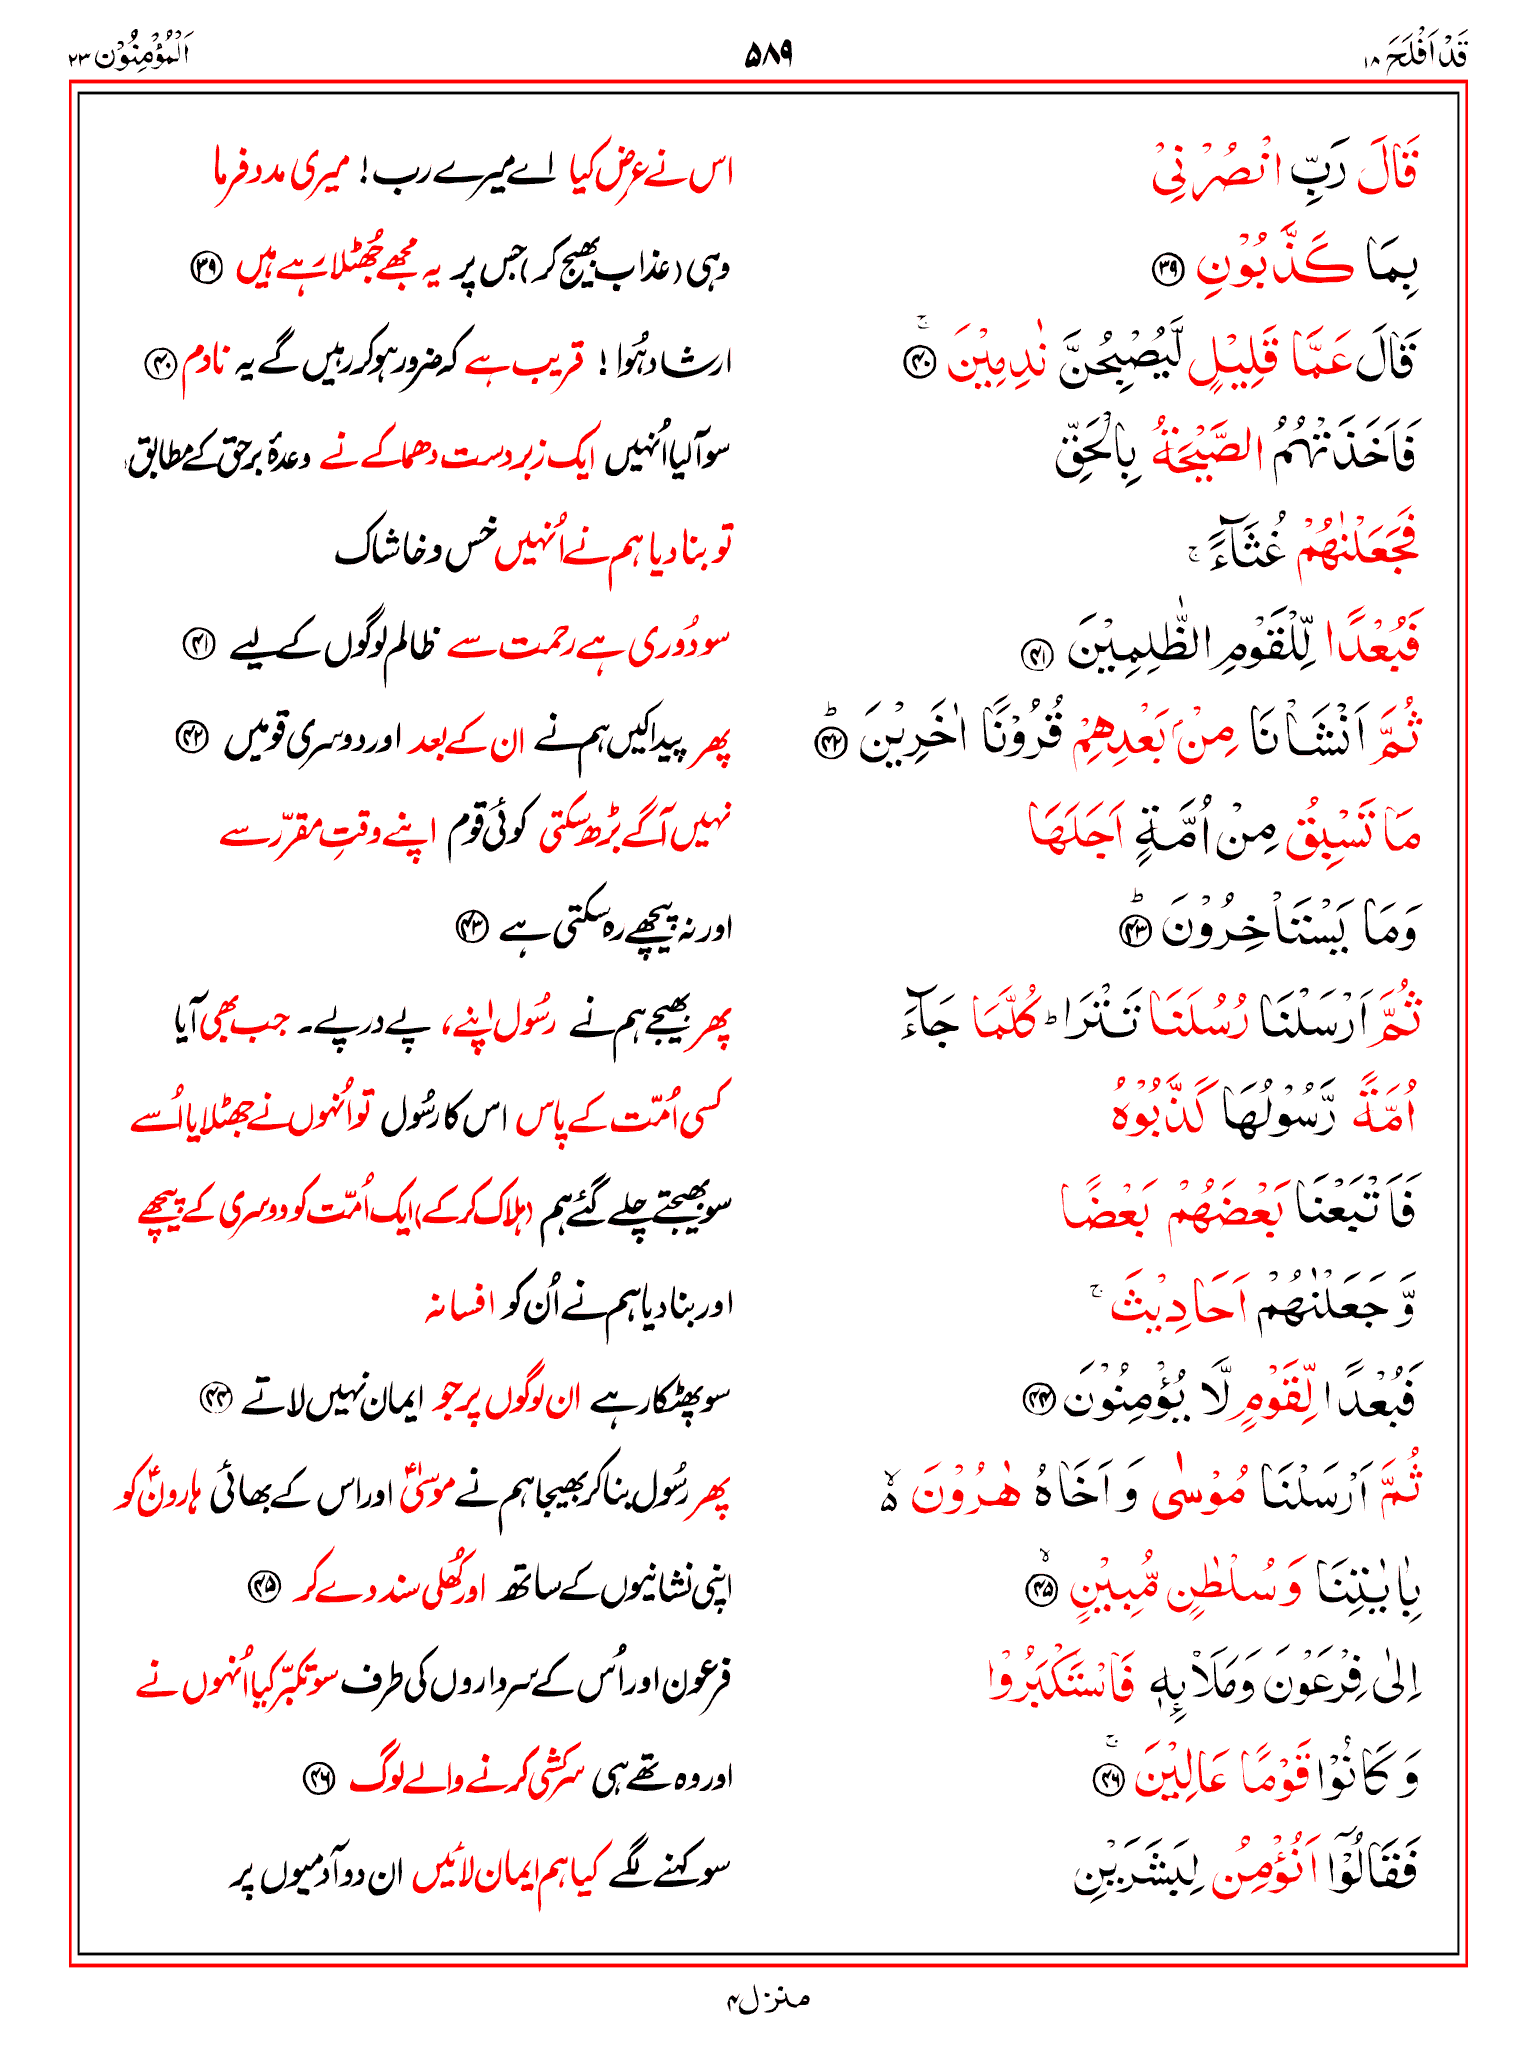 قَدْ اَفْلَحَ ۱۸
۵۸۹
اَلْمُؤْمِنُوْن ۲۳
قَالَ رَبِّ انْصُرْنِیْ
اس نے عرض کیا اے میرے رب! میری مدد فرما
بِمَا كَذَّبُوْنِ ۳۹
وہی (عذاب بھیج کر) جس پر یہ مجھے جُھٹلا رہے ہیں ۳۹
قَالَ عَمَّا قَلِیْلٍ لَّیُصْبِحُنَّ نٰدِمِیْنَ ۴۰ ۚ
ارشاد ہُوا! قریب ہے کہ ضرور ہو کر رہیں گے یہ نادم ۴۰
فَاَخَذَتْهُمُ الصَّیْحَةُ بِالْحَقِّ
سو آ لیا اُنہیں ایک زبردست دھماکے نے وعدۂ برحق کے مطابق،
فَجَعَلْنٰهُمْ غُثَآءً ۚ
تو بنا دیا ہم نے اُنہیں خس و خاشاک
فَبُعْدًا لِّلْقَوْمِ الظّٰلِمِیْنَ ۴۱
سو دُوری ہے رحمت سے ظالم لوگوں کے لیے ۴۱
ثُمَّ اَنْشَاْنَا مِنْۢ بَعْدِهِمْ قُرُوْنًا اٰخَرِیْنَ ۴۲ ؕ
پھر پیدا کیں ہم نے ان کے بعد اور دوسری قومیں ۴۲
مَا تَسْبِقُ مِنْ اُمَّةٍ اَجَلَهَا
نہیں آگے بڑھ سکتی کوئی قوم اپنے وقتِ مقرّر سے
وَمَا یَسْتَاْخِرُوْنَ ۴۳ ؕ
اور نہ پیچھے رہ سکتی ہے ۴۳
ثُمَّ اَرْسَلْنَا رُسُلَنَا تَتْرَا ؕ كُلَّمَا جَآءَ
پھر بھیجے ہم نے رسُول اپنے، پے درپے۔ جب بھی آیا
اُمَّةً رَّسُوْلُهَا كَذَّبُوْهُ
کسی اُمّت کے پاس اس کا رسُول تو اُنہوں نے جھٹلایا اُسے
فَاَتْبَعْنَا بَعْضَهُمْ بَعْضًا
سو بھیجتے چلے گئے ہم (ہلاک کرکے) ایک اُمّت کو دوسری کے پیچھے
وَّ جَعَلْنٰهُمْ اَحَادِیْثَ ۚ
اور بنا دیا ہم نے اُن کو افسانہ
فَبُعْدًا لِّقَوْمٍ لَّا یُؤْمِنُوْنَ ۴۴
سو پھٹکار ہے ان لوگوں پر جو ایمان نہیں لاتے ۴۴
ثُمَّ اَرْسَلْنَا مُوْسٰی وَ اَخَاهُ هٰرُوْنَ ۵ ۙ
پھر رسُول بنا کر بھیجا ہم نے موسیٰؑ اور اس کے بھائی ہارونؑ کو
بِاٰیٰتِنَا وَ سُلْطٰنٍ مُّبِیْنٍ ۴۵ ۙ
اپنی نشانیوں کے ساتھ اور کُھلی سند دے کر ۴۵
اِلٰی فِرْعَوْنَ وَ مَلَا۟ىِٕهٖ فَاسْتَكْبَرُوْا
فرعون اور اُس کے سرداروں کی طرف سو تکبّر کیا اُنہوں نے
وَ كَانُوْا قَوْمًا عَالِیْنَ ۴۶ ۚ
اور وہ تھے ہی سرکشی کرنے والے لوگ ۴۶
فَقَالُوْۤا اَنُؤْمِنُ لِبَشَرَیْنِ
سو کہنے لگے کیا ہم ایمان لائیں ان دو آدمیوں پر
منزل ۴